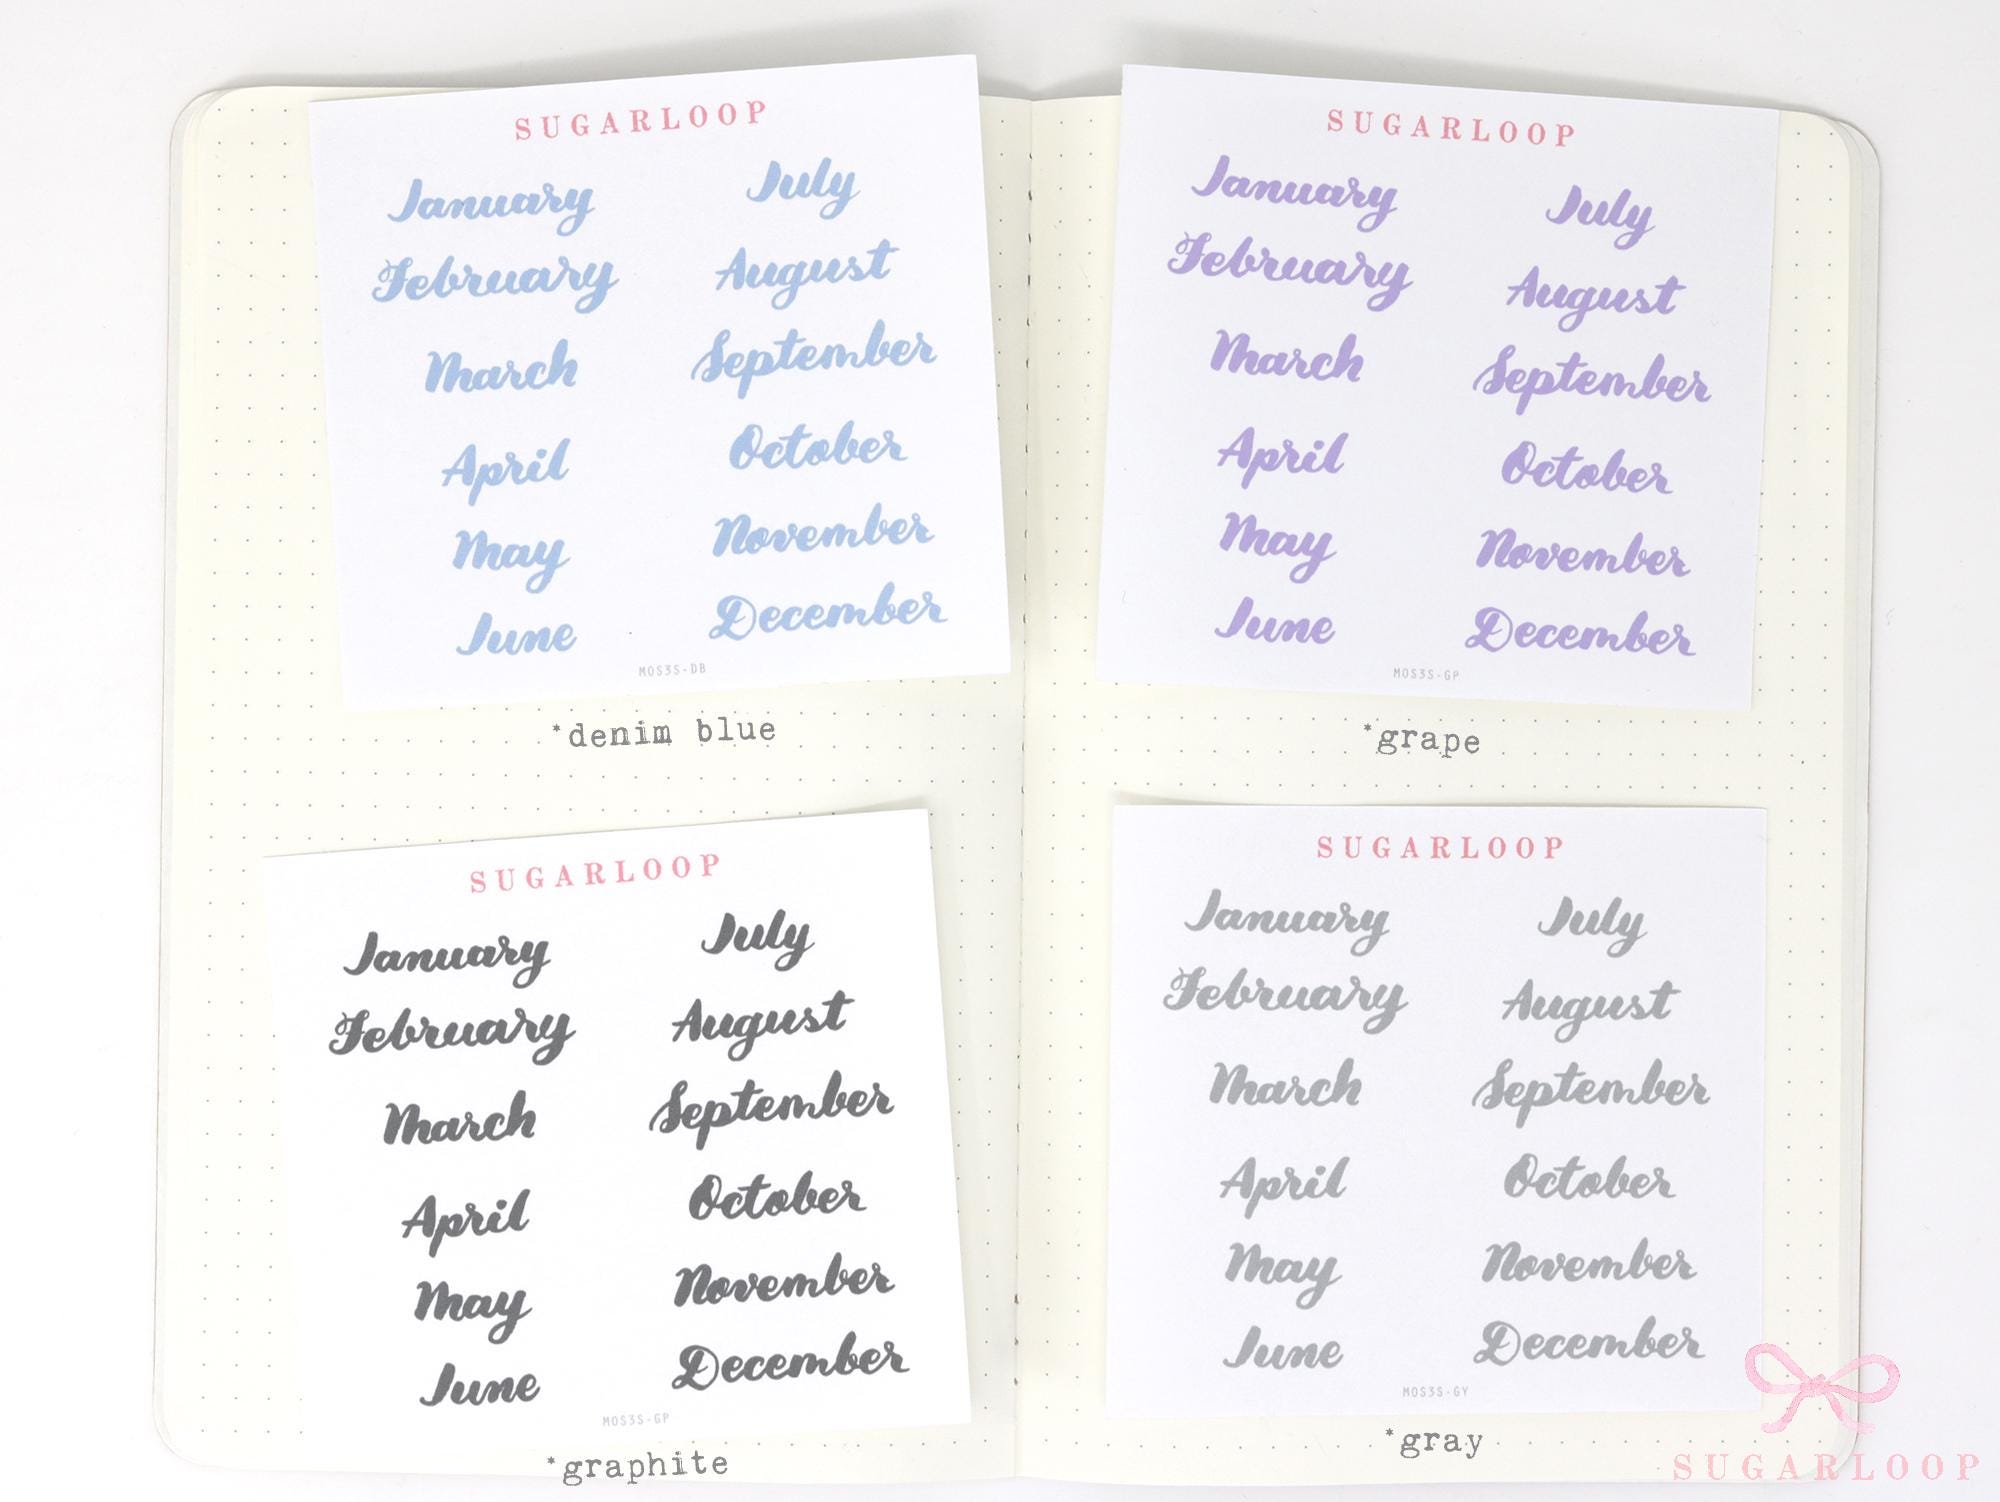 SUGARLOOP
January
February
March
April
May
June
July
August
September
October
November
December
MOS3S-DB
*denim blue
SUGARLOOP
January
February
March
April
May
June
July
August
September
October
November
December
MOS3S-GP
*grape
SUGARLOOP
January
February
March
April
May
June
July
August
September
October
November
December
MOS3S-GP
*graphite
SUGARLOOP
January
February
March
April
May
June
July
August
September
October
November
December
MOS3S-GY
*gray
SUGARLOOP